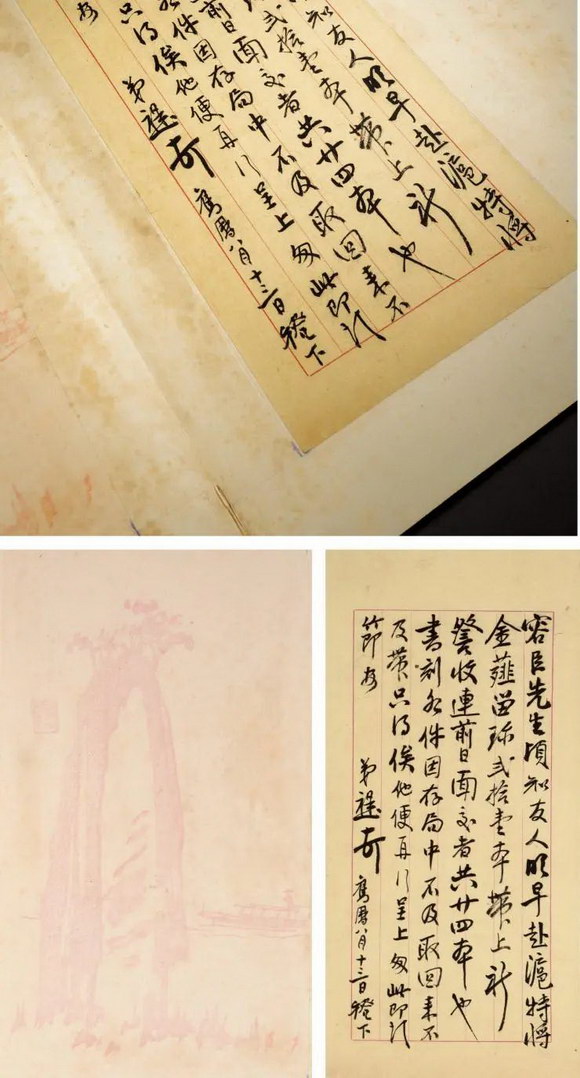 知友人明早赴滬特將
弍拾壹本帶上祈
前日面交者共廿四本也
各件因存局中不及取回來不
只得俟他便再行呈上匆此即
安
弟禔
舊曆八月十三日燈下
容臣先生頃知友人明早赴滬特將
金薤留珍弍拾壹本帶上祈
詧收連前日面交者共廿四本也
書刻各件因存局中不及取回來不
及帶只得俟他便再行呈上匆此即
節安
弟禔
舊曆八月十三日燈下